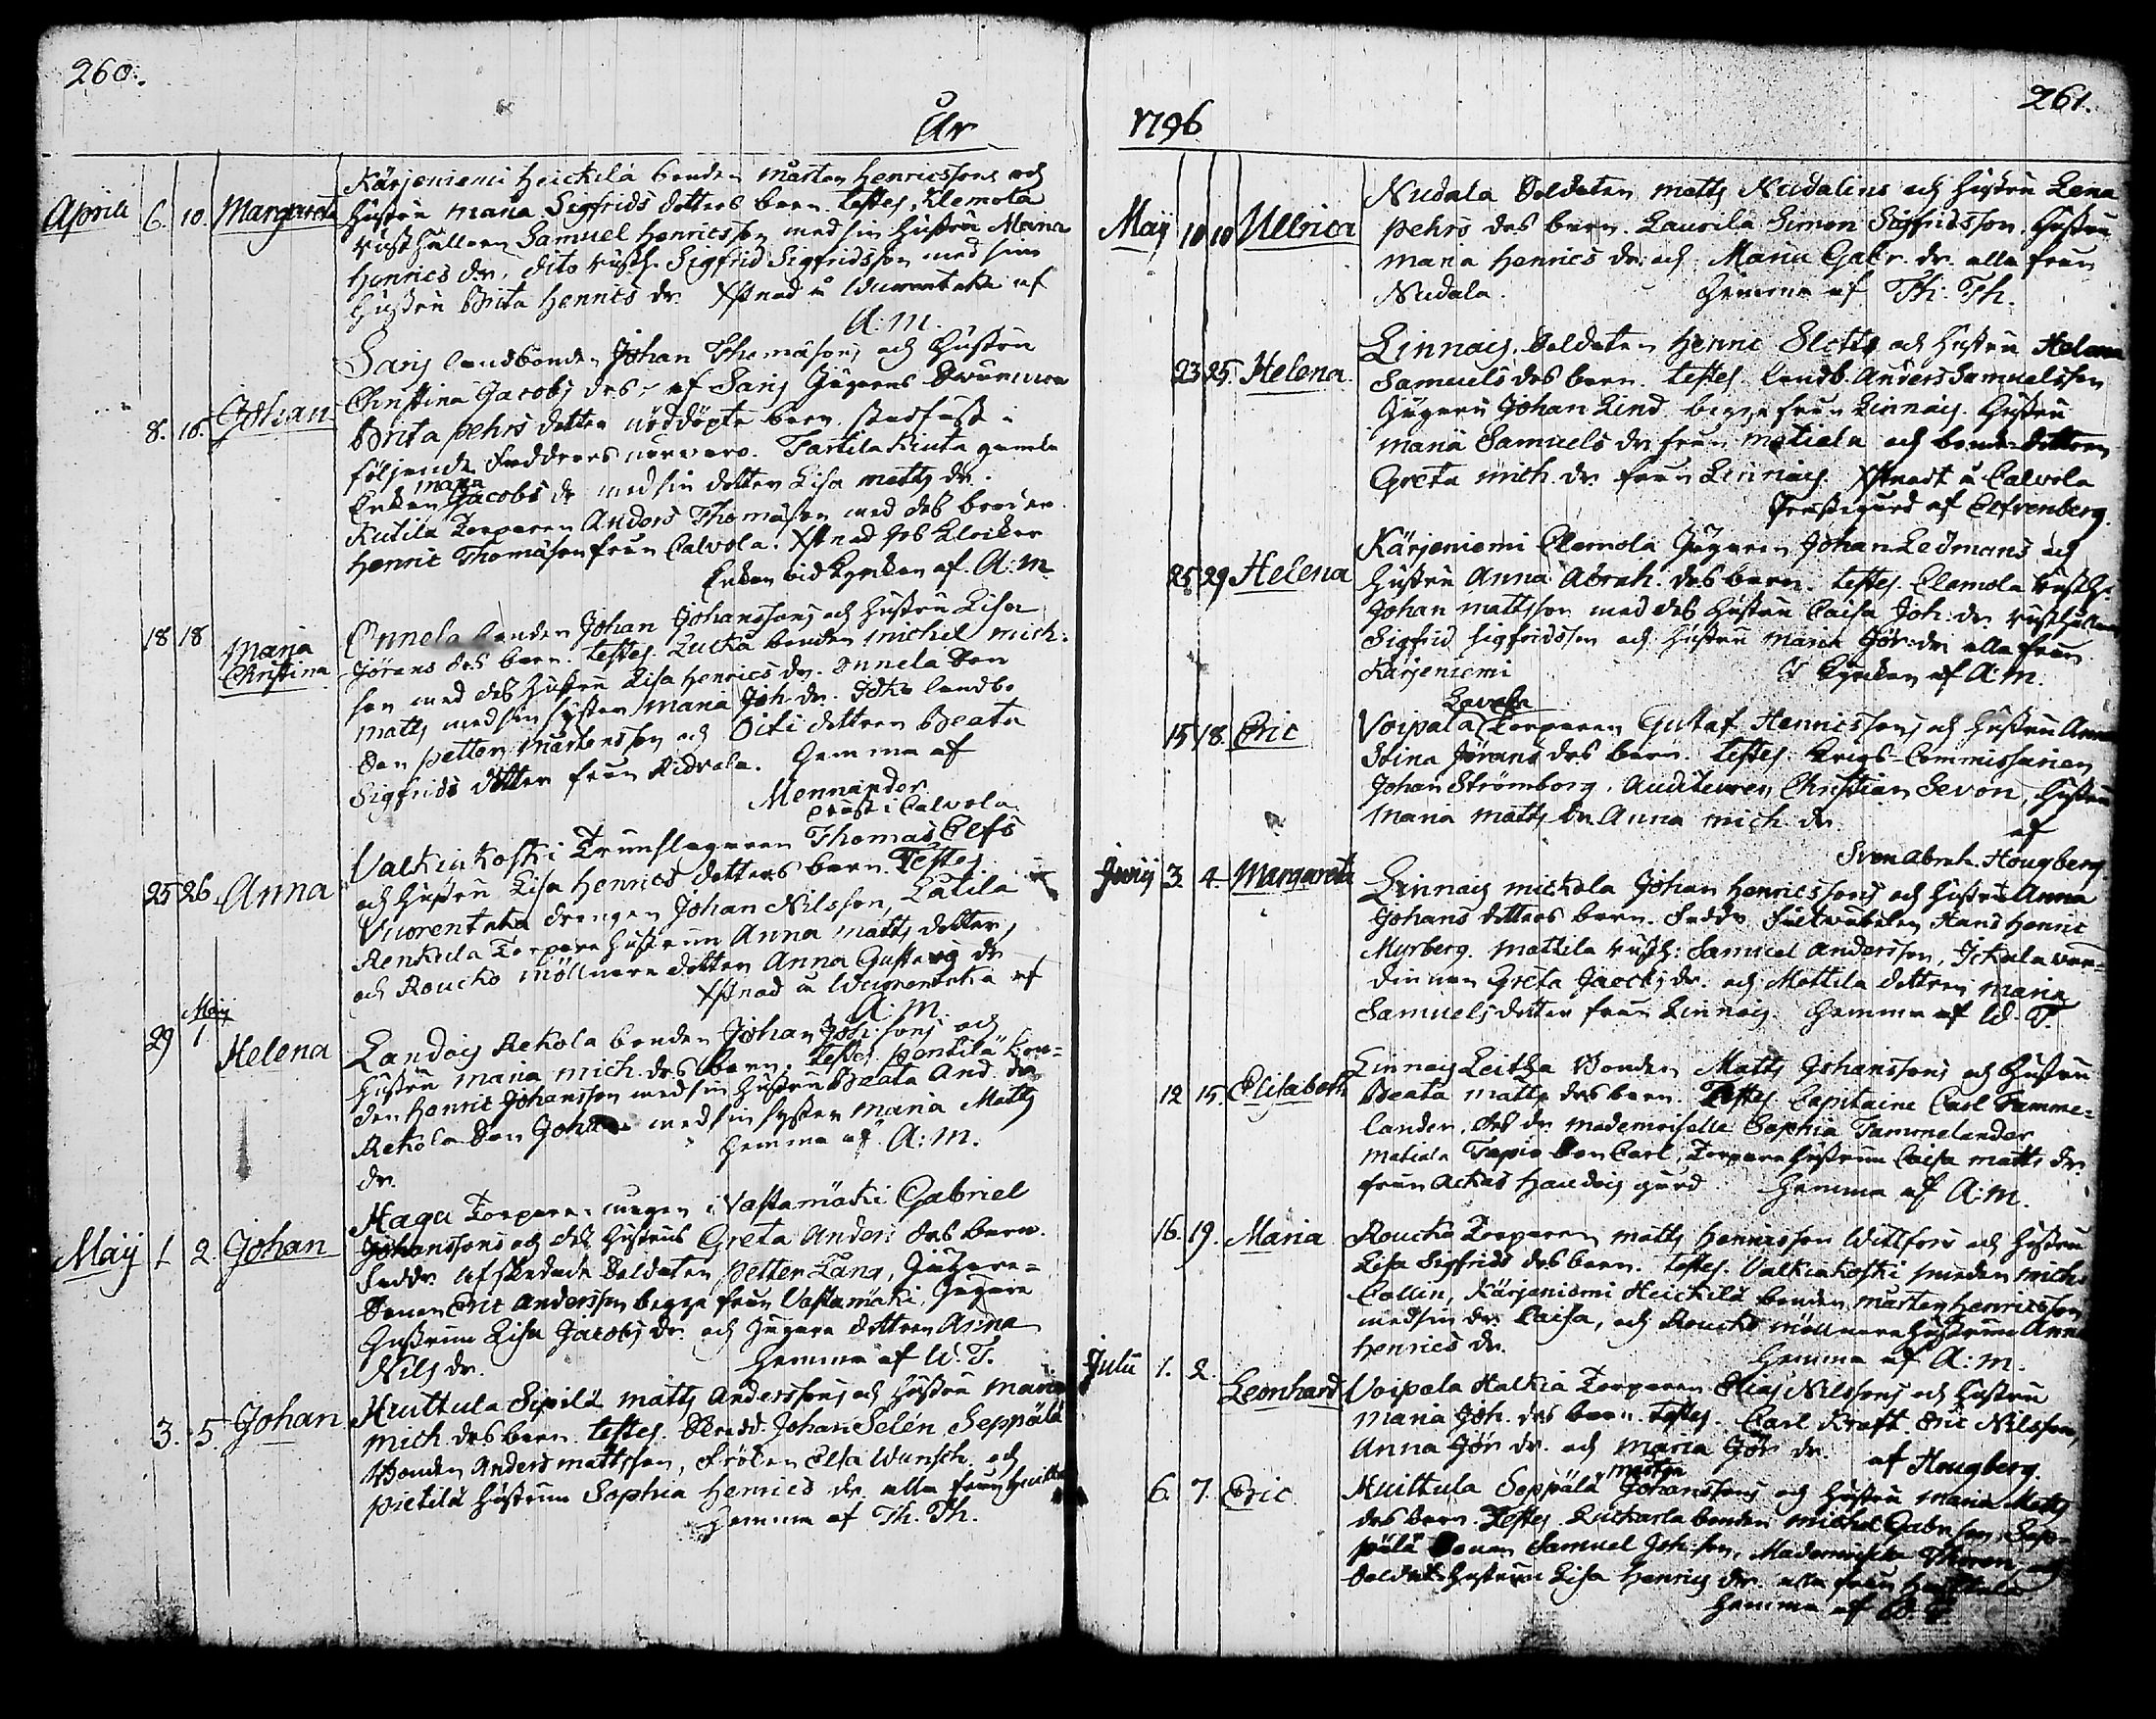 260.
År
Aprill 6. 10. Margareta Kärjeniemi Heickilä bonden Mårten Henricssons och
hustru Maria Sigfrids dotters barn. Testes. Klemola
rusthållaren Samuel Henricsson med sin hustru Maria
Henrics dr, dito rusth. Sigfrid Sigfridsson med sin
hustru Brita Henrics dr. Xstnad i Wuorentaka af
A: M.
8. 10. Johan Sarij landbonden Johan Thomasons och hustru
Christina Jacobs drs, af Sarij Jägarens
Brita Pehrs dotter nöddöpte barn stadfäst i
följande Faddrars närvaro. Tastila Kiuta gamla
Enkan Maria Jacobs dr med sin dotter Lisa Matts dr.
Kutila Torparen Anders Thomasson med des broder
Henric Thomason från Calvola. Xstnad hos Klockar
Enkan vid Kyrkan af A: M.
18 18 Maria Christina Annela bonden Johan Johanssons och hustru Lisa
Jörans drs barn. Testes. Lucka bonden Michel Mich:
son med des hustru Lisa Henrics dr. Annela Son
Matts med sin syster Maria Joh. dr. landb.
Son Petter Mårtensson och Oiti dottren Beata
Sigfrids dotter från Ridvala. Hemma af
Mennander
Præst i Calvola.
25 26 Anna Valkiakoski Trumslagaren Thomas Elfs
och hustru Lisa Henrics dotters barn. Testes
Vuorentaka drengen Johan Nilsson, Latila
Renkula Torpare hustrun Anna Matts dotter,
och Roucko möllnare dotter Anna Gustavs dr
Xstnad i Wuorentaka af
A: M.
29 Maij 1 Helena Landois Rekola bonden Johan Joh:sons och
hustru Maria Mich. drs barn. Testes. Pentilä bon=
den Henric Johansson med sin hustru Beata And. dr
Rekola Son Johan med sin syster Maria Matts
dr. Hemma af A: M.
Maij 1. 2. Johan Haga Torparen i Vastamäki Gabriel
Johanssons och des hustrus Greta Anders drs barn.
Faddr. Afskedade Soldaten Petter Lång, Jägare=
Sonen Eric Andersson begge från Vastamäki, Jägare
hustrun Lisa Jacobs dr. och Jägare dottren Anna
Nils dr. Hemma af W. T.
3. 5. Johan Huittula Sipilä Matts Anderssons och hustru Maria
Mich. drs barn. Testes. Johan Selén Seppälä
Bonden Anders Mattsson, Fröken Elsa Wunsch. och
Pietilä hustrun Sophia Henrics dr. alla från Huittula
Hemma af Th. Th.
1796
261.
Maij 10 10 Ullrica Nudala Soldaten Matts Nudalins och hustru Lena
Pehrs drs barn. Laurila Simon Sigfridsson, hustru
Maria Henrics dr: och Maria Gabr. dr. alla från
Nudala. Hemma af Th: Th.
23 25. Helena Linnais. Soldaten Henric Sletts och hustru Helena
Samuels drs barn. Testes. landb. Anders Samuelsson
Jägarn Johan Lind begge från Linnais. hustru
Maria Samuels dr från Metiala och bonde dottren
Greta Mich. dr. från Linnais. Xstnadt i Calvola
Prästgård af Elfvenberg.
25 29 Helena Kärjeniemi Clemola Jägaren Johan Ledmans och
hustru Anna Abrah. drs barn. Testes. Clemola rusth.
Johan Mattsson med des hustru Caisa Joh. dr rusthållaren
Sigfrid Sigfridsson och hustru Maria Gör: dr alla från
Kärjeniemi Kyrckan af A: M.
15 18. Eric Voipala Lavala Torparen Gustaf Henricssons och hustru Anna
Stina Jörans drs barn. Testes. Krigs-Commissarien
Johan Strömborg, Auditeuren Christian Sevon, hustru
Maria Matts dr. Anna Mich. dr. af
Sven Abrah. Hougberg.
Junij 3. 4. Margareta Linnais Mickola Johan Henricssons och hustrus Anna
Johans dotters barn. Faddr. Hans Henric
Myrberg. Mattila rusth: Samuel Andersson, Ickala wär=
dinnan Greta Jacobs dr. och Mattila dottren Maria
Samuels dotter från Linnais. Hemma af W. T.
12 15. Elisabeth Linnais Leitza Bonden Matts Johanssons och hustru
Beata Matts drs barn. Testes. Capitaine Carl Tamme=
lander, des dr. Mademoiselle Sophia Tammelander
Matiala Tapio Son Carl, Torpare hustrun Caisa Matts dr.
från Ackas Handois gård. Hemma af A: M.
16. 19. Maria Roucko Torparen Matts Henricsson Willfors och hustru
Lisa Sigfrids drs barn. Testes. Valkiakoski smeden Mich.
Collin, Kärjeniemi Heickilä bonden Mårten Henricsson
med sin dr. Caisa, och Roucko möllnare hustrun Anna
Henrics dr. Hemma af A: M.
Julii 1. 2. Leonhard Voipala Halkia Torparen Elias Nilssons och hustru
Maria Joh. drs barn. Testes. Carl Kraft. Eric Nilsson,
Anna Gör dr. och Maria Gör dr. af Hougberg.
6. 7. Eric. Huittula Seppälä Johanssons och hustru Maria Matts
drs barn. Testes. Luckarla bonden Michel Gabr.son, Sep=
pälä Sonen Samuel Joh:son, Mademoiselle Thoren, och
Soldats hustrun Lisa Henrics dr. alla från Huittula
Hemma af W. T.